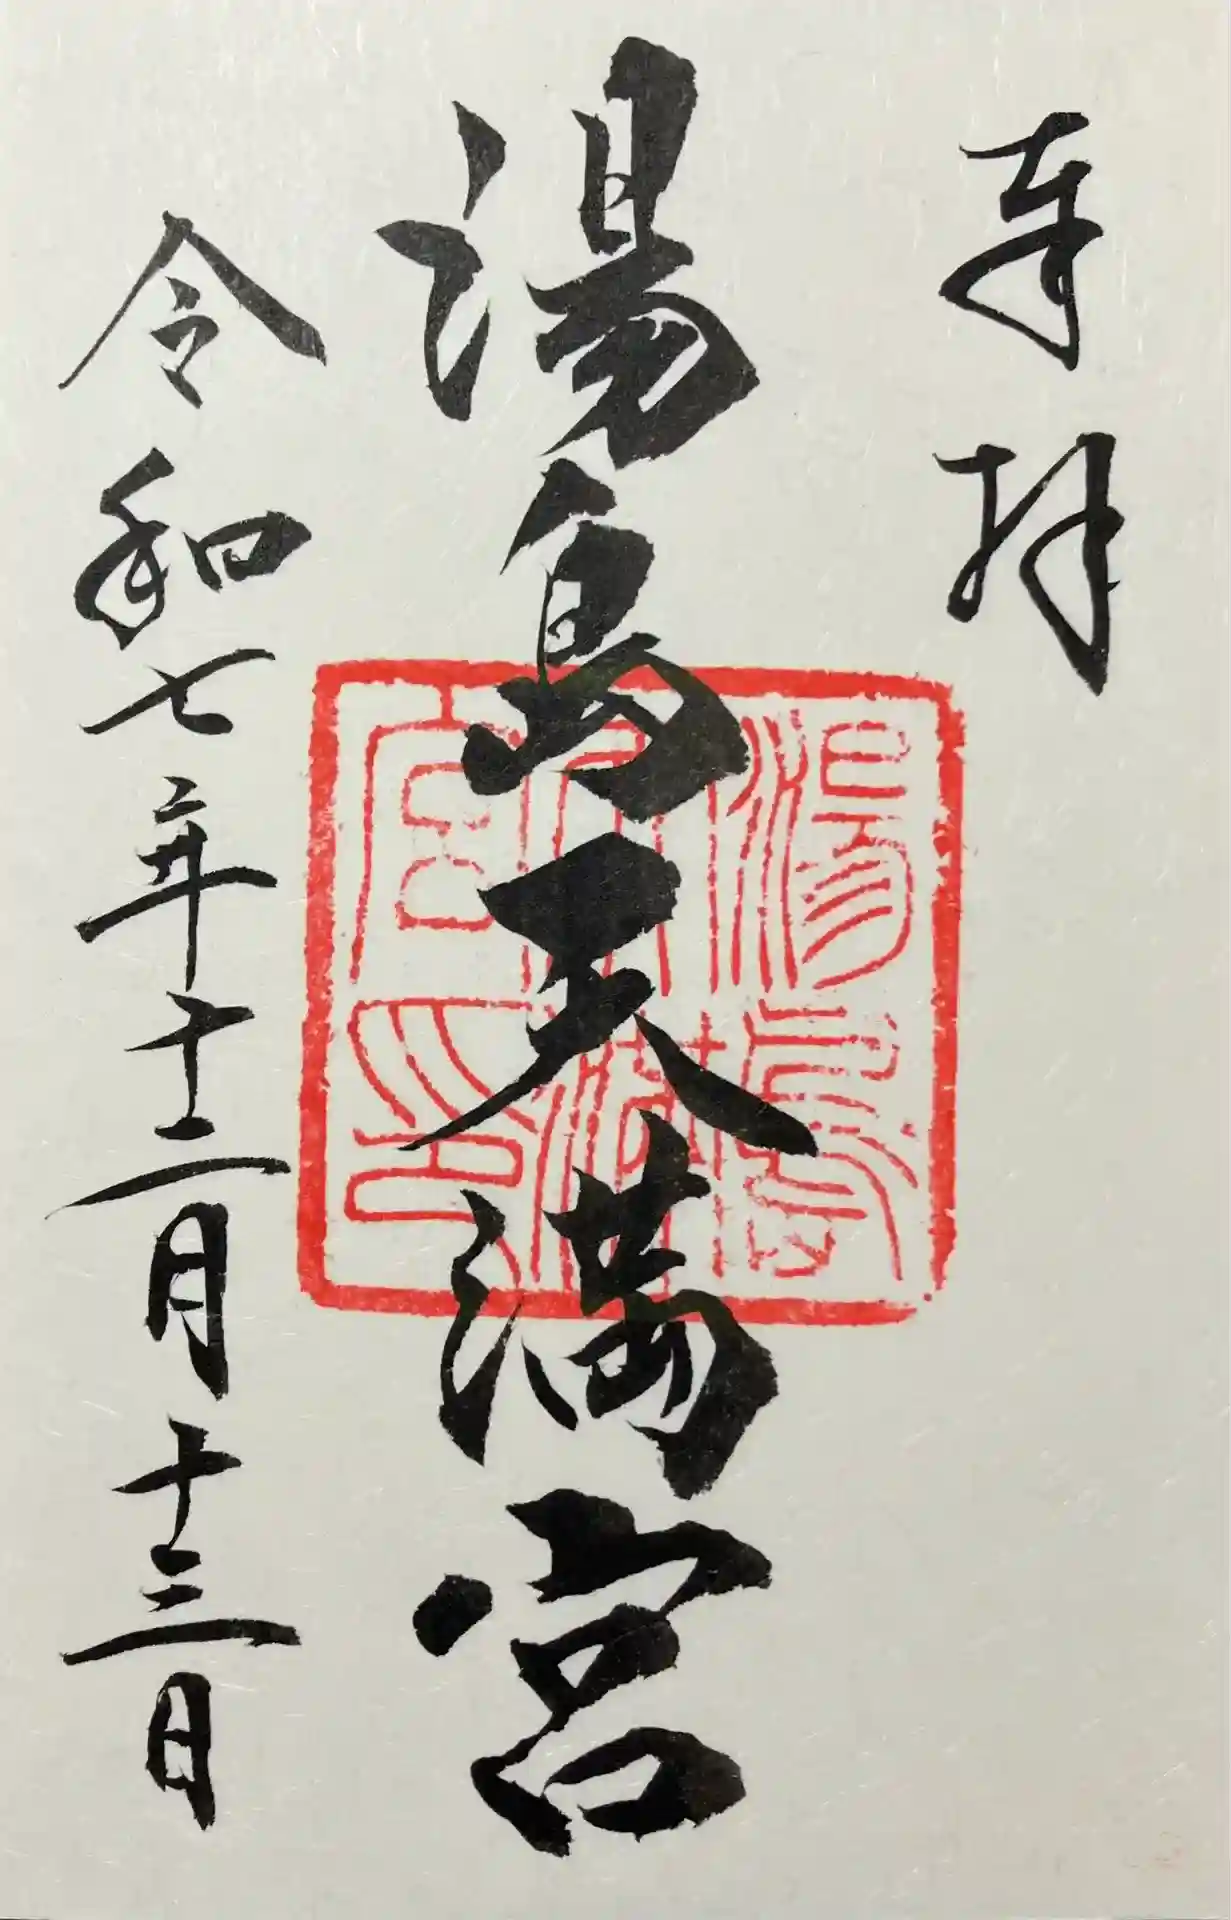 奉拝
湯島天満宮
令和七年十二月十三日
湯島
天満
宮印